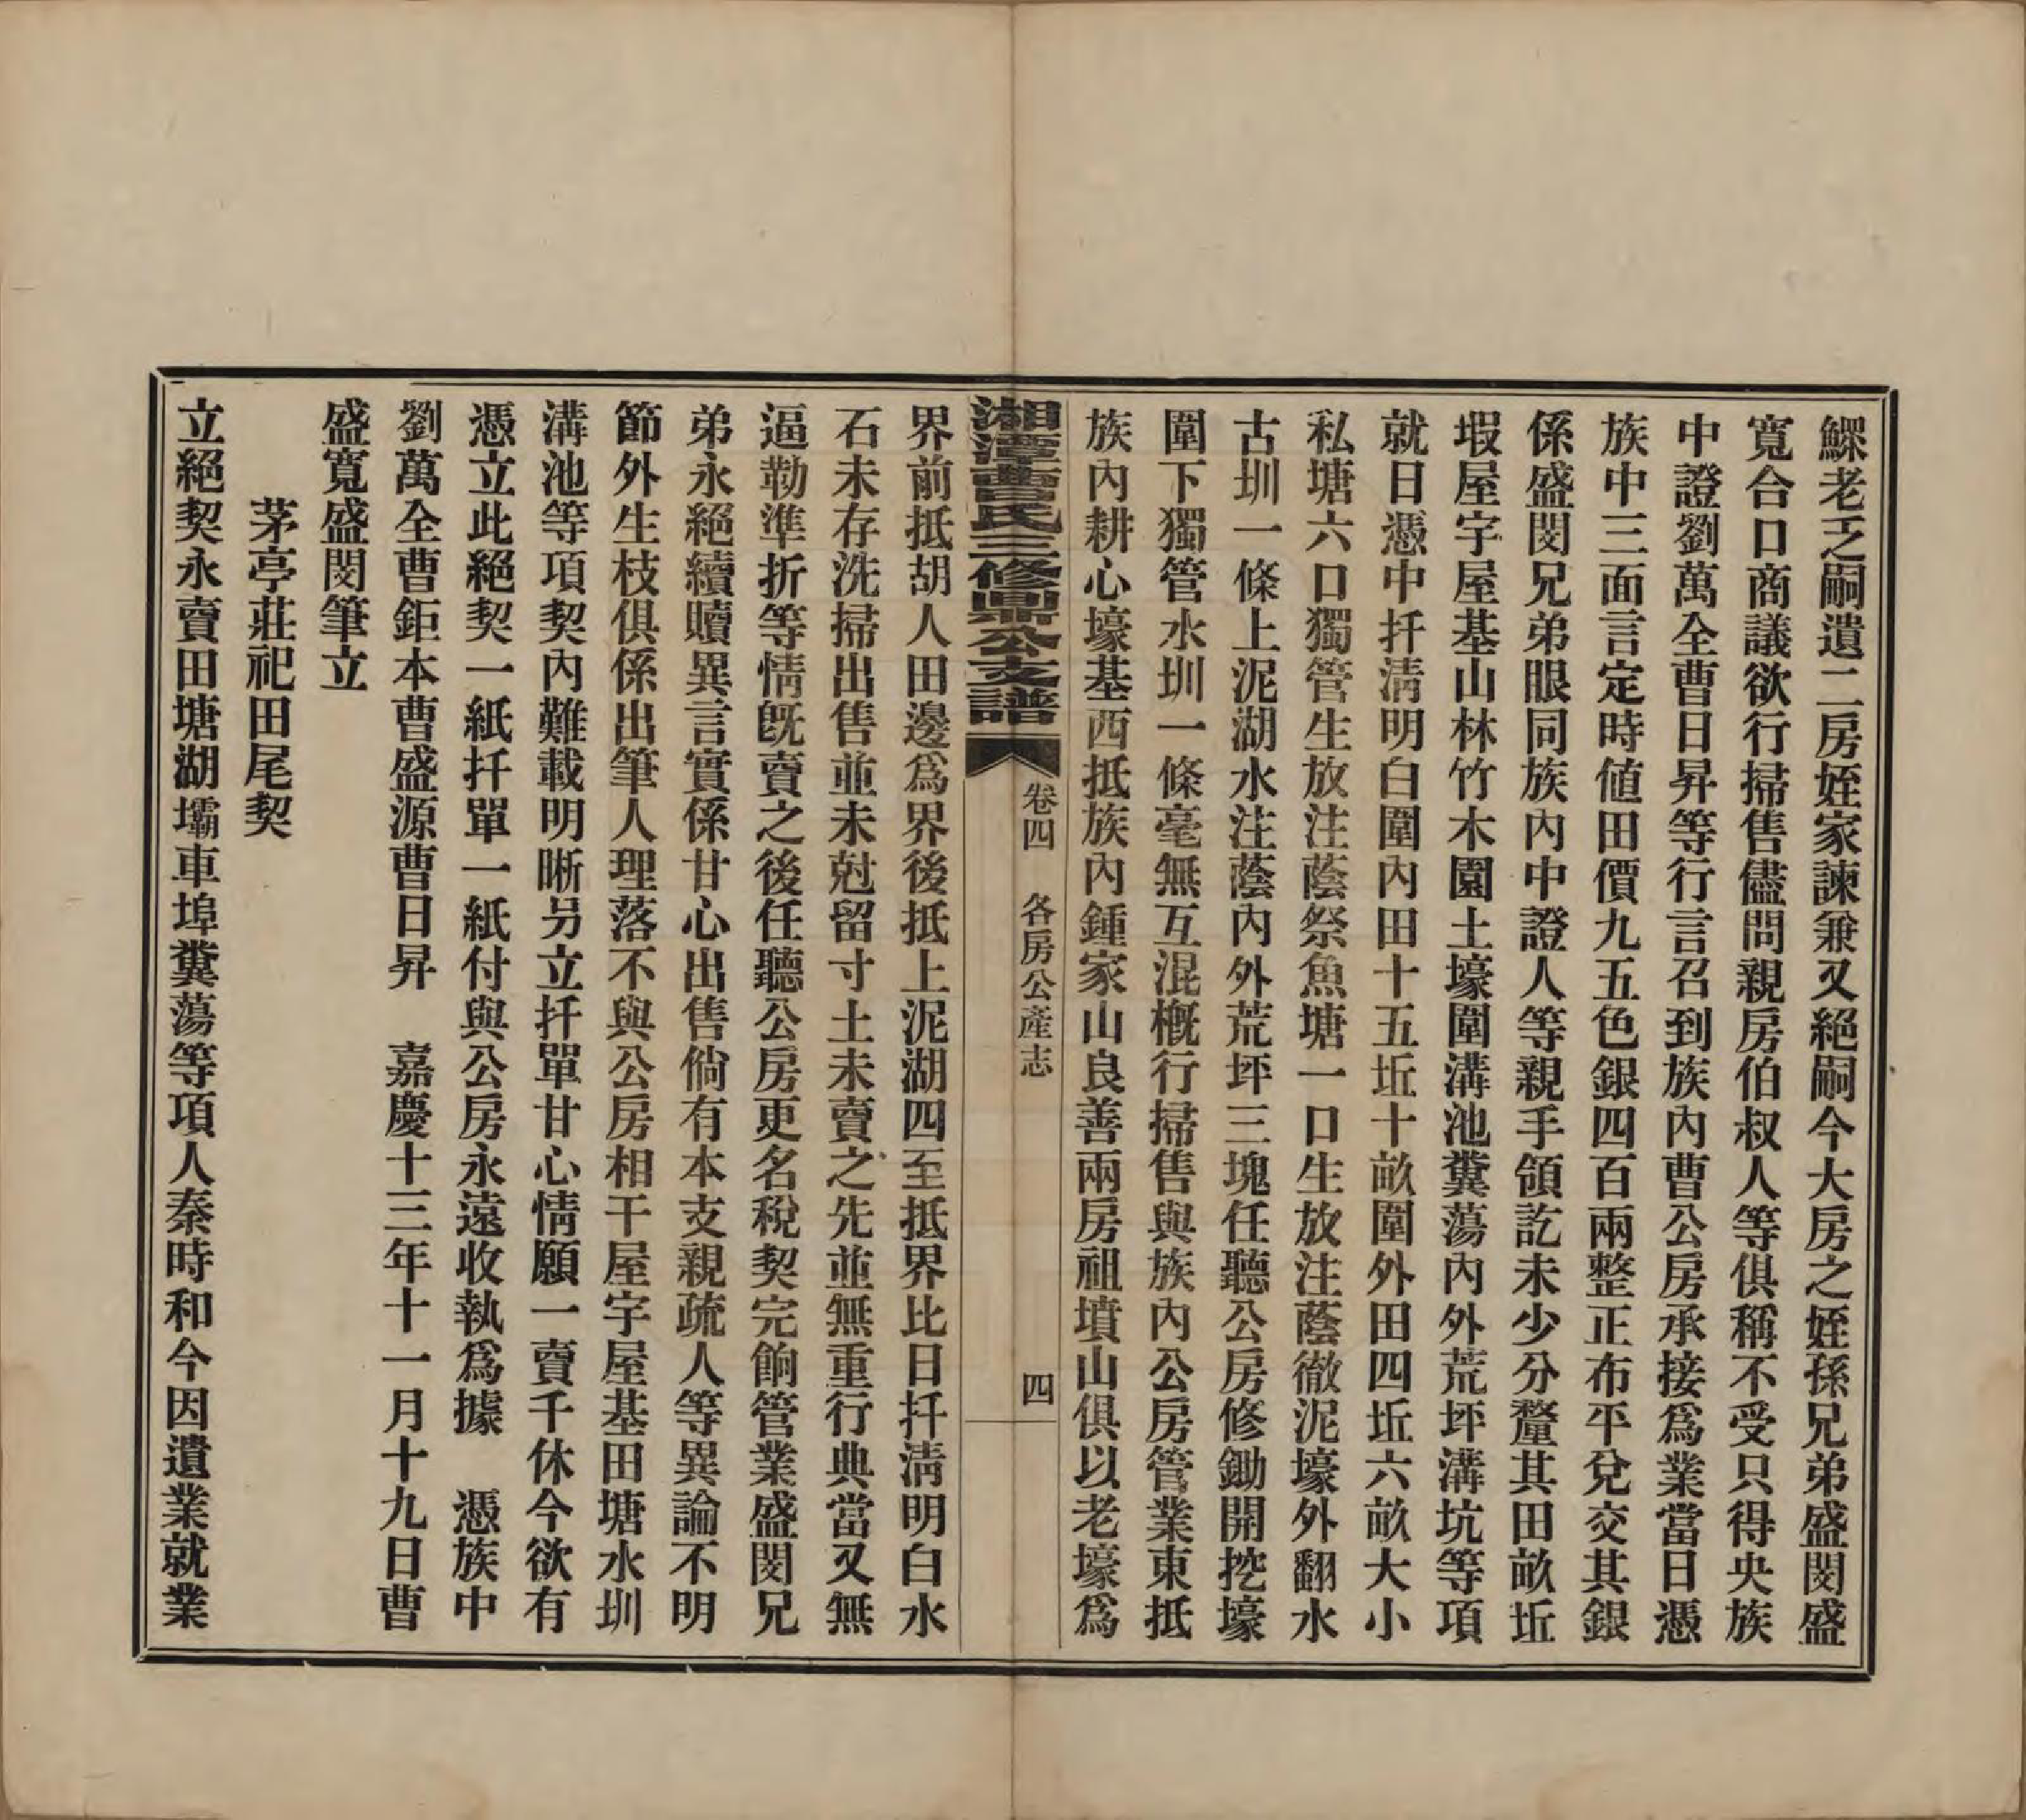 鰥老乏嗣遺二房姪家諫兼又絕嗣今大房之姪孫兄弟盛閔盛
寬合口商議欲行掃售儘問親房伯叔人等俱稱不受只得央族
中證劉萬全曹日昇等行言召到族內曹公房承接爲業當日憑
族中三面言定時値田價九五色銀四百兩整正布平兌交其銀
係盛閔兄弟眼同族內中證人等親手領訖未少分釐其田畝坵
塅屋宇屋基山林竹木園土壕圍溝池糞蕩內外荒坪溝坑等項
就日憑中扦淸明白圍內田十五坵十畝圍外田四坵六畝大小
私塘六口獨管生放注蔭祭魚塘一口生放注蔭徹泥壕外翻水
古圳一條上泥湖水注蔭內外荒坪三塊任聽公房修鋤開挖壕
圍下獨管水圳一條毫無互混槪行掃售與族內公房管業東抵
族內耕心壕基西抵族內鍾家山良善兩房祖墳山俱以老壕爲
湘潭曹氏三修鼎公支譜 卷四 各房公產志 四
界前抵胡人田邊爲界後抵上泥湖四至抵界比日扦淸明白水
石未存洗掃出售並未尅留寸土未賣之先並無重行典當又無
逼勒準折等情旣賣之後任聽公房更名稅契完餉管業盛閔兄
弟永絕續贖異言實係甘心出售倘有本支親疏人等異論不明
節外生枝俱係出筆人理落不與公房相干屋宇屋基田塘水圳
溝池等項契內難載明晰另立扦單甘心情願一賣千休今欲有
憑立此絕契一紙扦單一紙付與公房永遠收執爲據 憑族中
劉萬全曹鉅本曹盛源曹日昇 嘉慶十三年十一月十九日曹
盛寬盛閔筆立
茅亭莊祀田尾契
立絕契永賣田塘湖壩車埠糞蕩等項人秦時和今因遺業就業